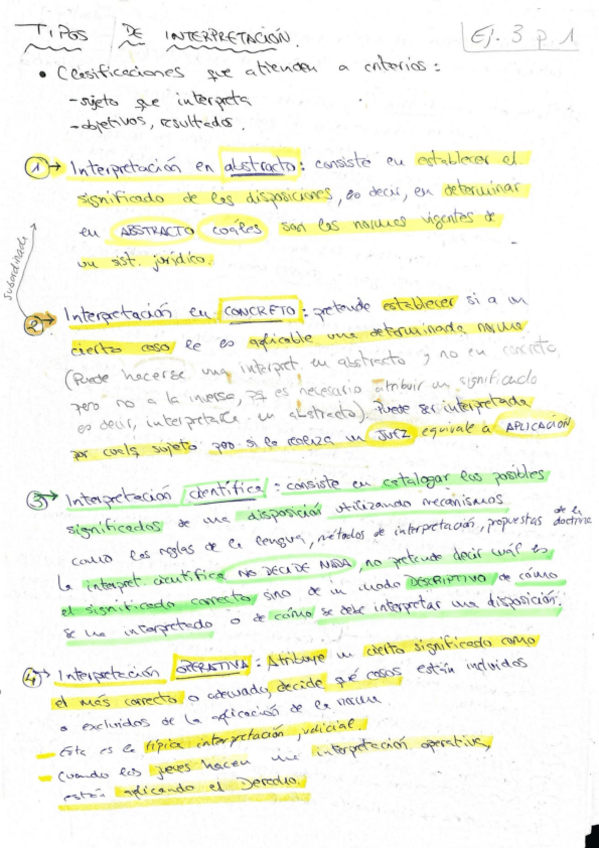 TIPOS DE INTERPRETACIÓN.
Ej. 3 p. 1
• Clasificaciones que atienden a criterios:
- sujeto que interpreta
- objetivos, resultados.
1 → Interpretación en abstracto: consiste en establecer el
significado de las disposiciones, es decir, en determinar
en ABSTRACTO cuáles son las normas vigentes de
un sist. jurídico.
subordinada
2 → Interpretación en CONCRETO: pretende establecer si a un
cierto caso le es aplicable una determinada norma
(Puede hacerse una interpret. en abstracto y no en concreto
pero no a la inversa, es necesario atribuir un significado
es decir, interpretarla en abstracto). Puede ser interpretada
por cualq. sujeto pero si la realiza un JUEZ equivale a APLICACIÓN
3 → Interpretación científica: consiste en catalogar los posibles
significados de una disposición utilizando mecanismos
como las reglas de la lengua, métodos de interpretación, propuestas de la doctrina
La interpret. científica NO DECIDE NADA, no pretende decir cuál es
el significado correcto sino de un modo DESCRIPTIVO de cómo
se ha interpretado o de cómo se debe interpretar una disposición.
4 → Interpretación OPERATIVA: Atribuye un cierto significado como
el más correcto o adecuado, decide qué casos están incluidos
o excluidos de la aplicación de la norma.
- Esta es la típica interpretación judicial.
- Cuando los jueces hacen una interpretación operativa,
están aplicando el Derecho.